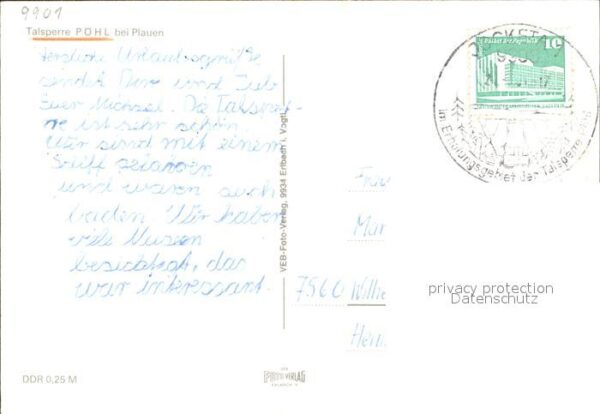 9901
Talsperre PÖHL bei Plauen
Herzliche Urlaubsgrüße
sendet Dir und
Euer Michael. Die Talsper-
re ist sehr schön.
Wir sind mit einem
Schiff gefahren
und waren auch
baden. Wir haben
viele Museen
besichtigt, das
war interessant.
VEB-Foto-Verlag, 9934 Erlbach i. Vogtl.
10
im Erholungsgebiet der Talsperre Pöhl
7560
privacy protection
Datenschutz
DDR 0,25 M
FOTO VERLAG